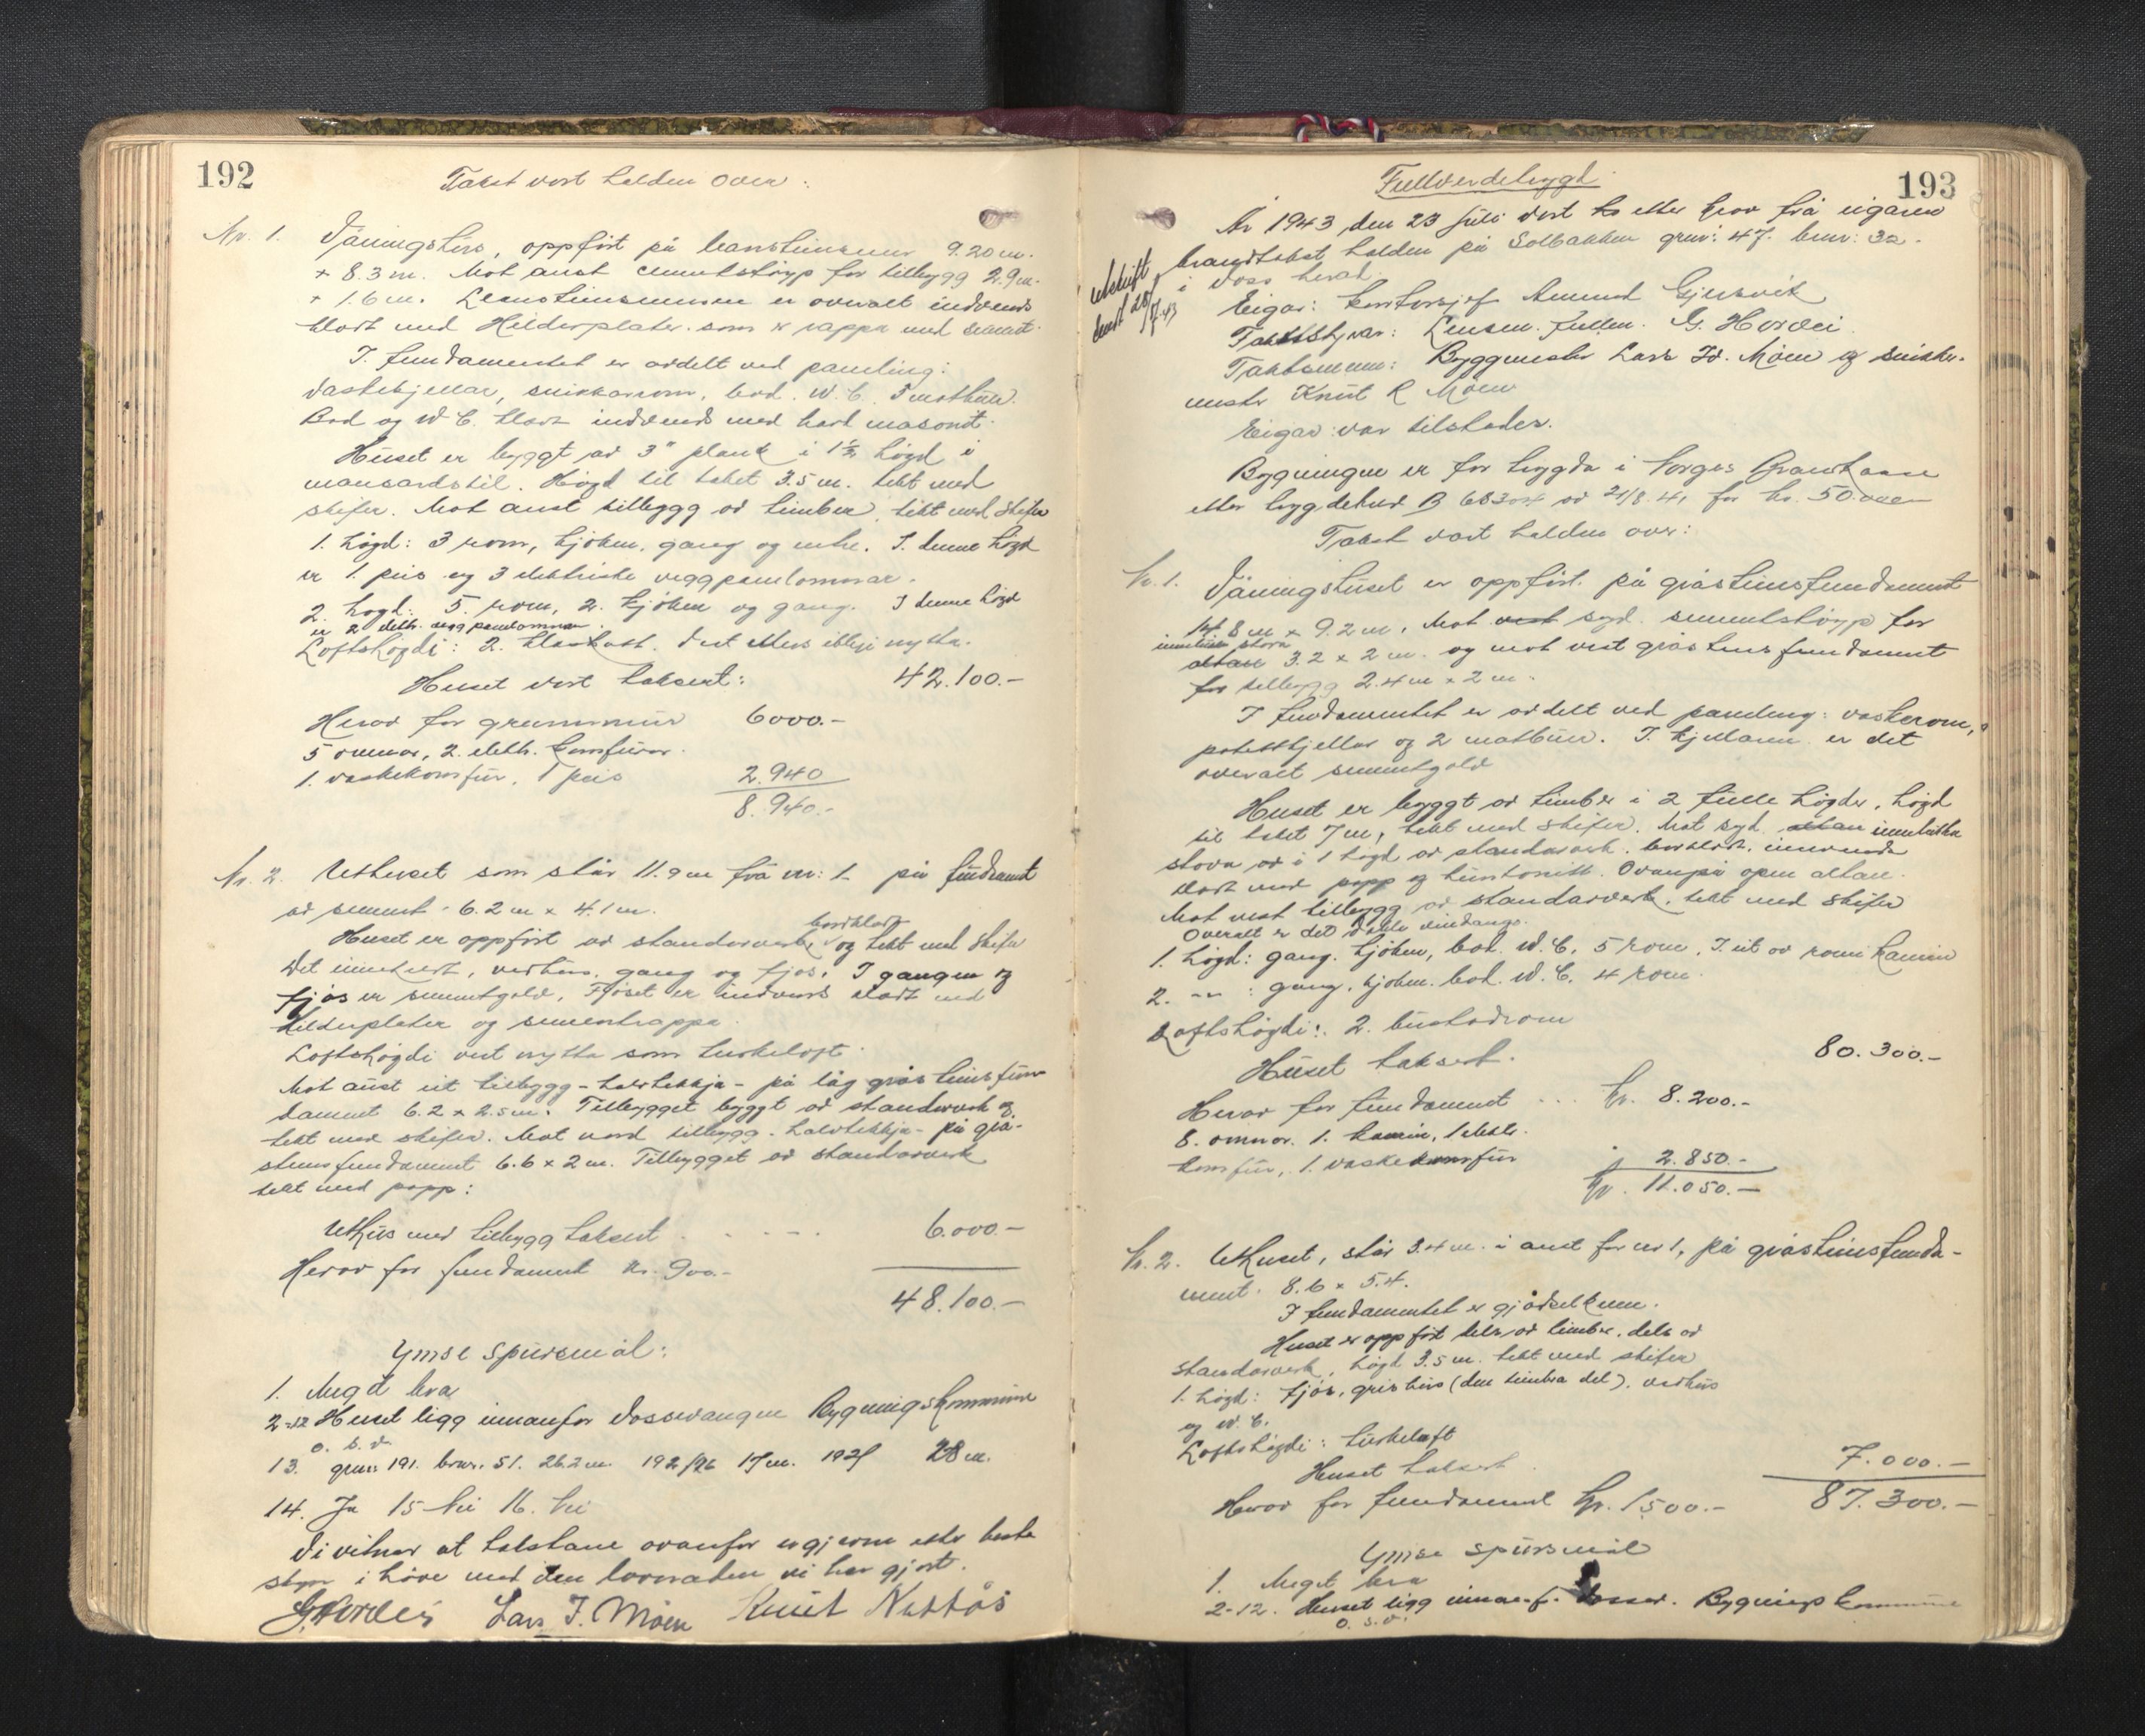 192
Takst vart halden over:
Nr. 1. Våningshus, oppført på betongsteinsmur 9.20 m.
× 8.3 m. Mot aust cementstøyp for tilbygg 2.9 m.
× 1.6 m. er overalt indvends
klædt med Hilderplater som er rappa med sement.
I fundamentet er avdelt ved paneling:
Vaskekjellar, snikkarrom, bod. W.C. 3 matbuer.
Bad og W.C. klædt indvends med hard masonit.
Huset er byggt av 3" plank i 1½ høgd i
mansardstil. Høgd til taket 3.5 m. tekt med
skifer. Mot aust tilbygg av timber, tekt med skifer
1. høgd: 3 rom, kjøken, gang og entre. I denne høgd
er 1. peis og 3 elektriske veggpanelomnar.
2. høgd: 5. rom, 2. kjøken og gang. I denne høgd
er 2 elektr. veggpanelomnar.
Loftshøgdi: 2. klæskott. Vert ellers ikkje nytta.
Huset vert taksert: 42.100.-
Herav for grunnmur 6000.-
5 omnar, 2. elektr. komfurar.
1. vaskekomfur, 1 peis 2.940
8.940.-
Nr. 2. Uthuset som står 11.9 m frå nr: 1. på fundament
av sement. 6.2 m × 4.1 m.
bordklædt
Huset er oppført av standarverk og tekt med skifer
Det inneheld, vedhus, gang og fjøs. I gangen og
fjøs er sementgolv. Fjøset er indvends klædt med
Hilderplater og sementrappa.
Loftshøgdi vert nytta som turkeloft.
Mot aust eit tilbygg - halvtekkja - på låg gråsteinsfun-
dament 6.2 × 2.5 m. Tilbygget byggt av standarverk og
tekt med skifer. Mot nord tilbygg - halvtekkja - på grå-
steinsfundament 6.6 × 2 m. Tilbygget av standarverk
tekt med papp:
Uthus med tilbygg taksert 6.000.-
Herav for fundament kr. 900.-
48.100.-
Ymse spursmål:
1. Mugd bra
2-12 Huset ligg innanfor Vossevangen Bygningskommune
o. s. v.
13. gnr. 191. bnr. 51. 26.2 m. 192/96 17 m. 28 m.
14. Ja 15 Nei 16. Nei
Vi vitnar at takstane ovanfor er gjevne etter beste
skyn i høve med den lovnaden vi har gjort.
G. Hordvei Lars I. Møen Knut Nattås
Fullverdebygd
193
År 1943, den 23 juli vart etter krav frå eigaren
brandtakst halden på Solbakken gnr: 47. bnr: 32.
i Voss herad.
Utskrift
sendt 28/7-43
Eigar: Kontorsjef Amund Gjersvik
Takststyrar: Lensm. fullm. G. Hordvei.
Takstmenn: Byggmeister Lars Iv. Møen og snikkar-
meister Knut R Møen
Eigar var tilstades.
Bygningen er før trygda i Norges Brandkasse
etter trygdebrev B 68304 av 21/8.41 for kr. 50.000
Takst vart halden over:
Nr. 1. Våningshuset er oppført på gråsteinsfundament
14.8 m × 9.2 m. Mot syd. sementstøyp for
innebua stova
3.2 × 2 m. og mot vest gråsteinsfundament
for tilbygg 2.4 m × 2 m.
I fundamentet er avdelt ved paneling: vaskerom,
potetkjellar og 2 matbuer. I kjellaren er det
overalt sementgolv
Huset er byggt av timber i 2 fulle høgder, høgd
til taket 7 m, tekt med skifer. Mot syd.
stova av i 1 høgd av standarverk, bordklædt, innvendes
klædt med papp og huntonitt. Ovanpå open altan.
Mot vest tilbygg av standarverk, tekt med skifer
Overalt er det doble vindaugo.
1. høgd: gang, kjøken, bad. W.C. 5 rom. I eit av rom kamin
2. -"- : gang, kjøken. bad. W.C. 4 rom.
Loftshøgdi: 2. bustadrom
Huset taksert. 80.300.-
Herav for fundament ... kr. 8.200.-
8. omnar. 1. kamin, 1 elektr.
komfur, 1. vaskekomfur " 2.850.-
kr. 11.050.-
Nr. 2. Uthuset, står 34 m. i aust for nr 1, på gråsteinsfunda-
ment. 8.6 × 5.4.
I fundamentet er gjødselkum.
Huset er oppført dels av timber, dels av
standarverk, høgd 3.5 m. tekt med skifer
1. høgd: fjøs, grishus (den timbra del), vedhus
og W.C.
Loftshøgdi: turkeloft
Huset taksert 7.000.-
Herav for fundament kr. 1500.- 87.300.-
Ymse spursmål
1. Meget bra
2-12. Huset ligg innanf. Vossev. Bygnings kommune
o. s. v.